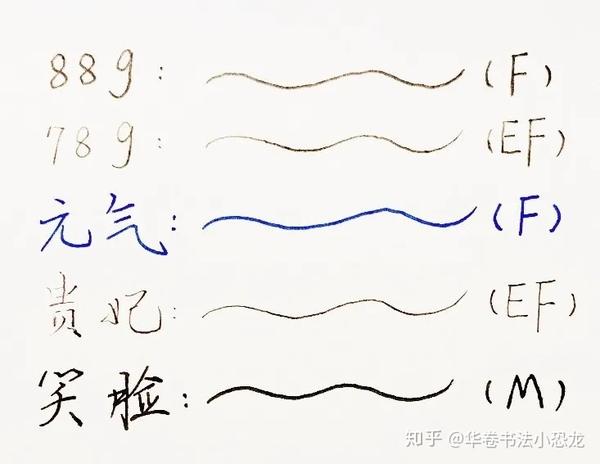 88g: (F)
78g: (EF)
元气: (F)
贵妃: (EF)
笑脸: (M)
知乎 @华卷书法小恐龙